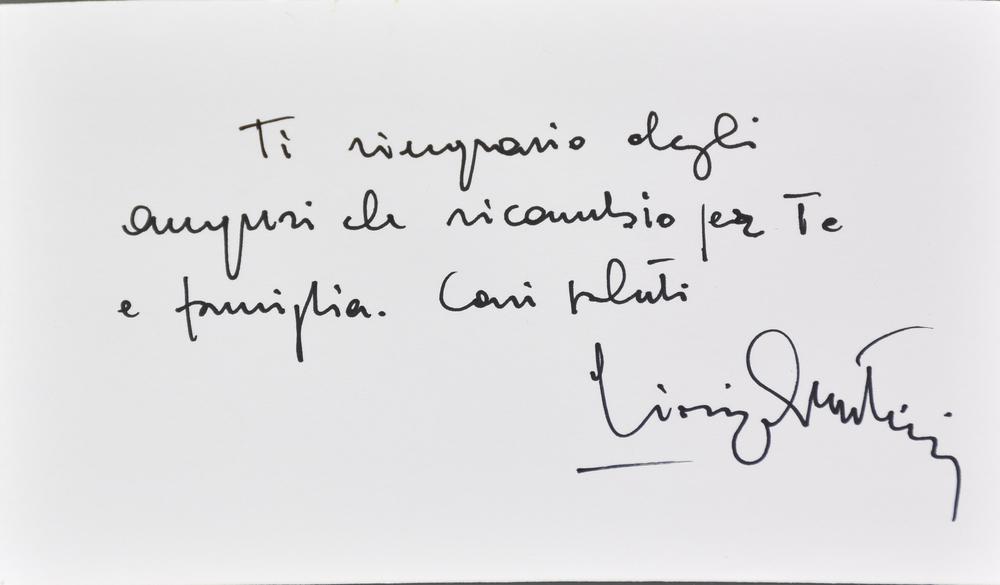 Ti ringrazio degli
auguri che ricambio per Te
e famiglia. Cari saluti